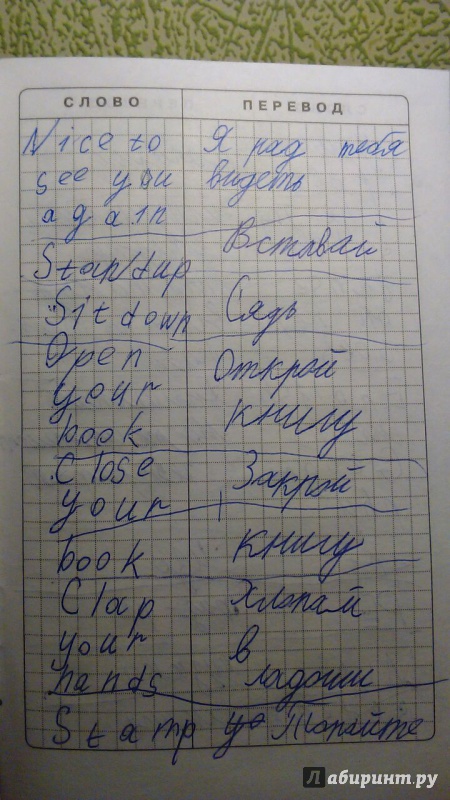 СЛОВО ПЕРЕВОД
Nice to Я рад тебя
see you видеть
again
Stand up Вставай
Sit down Сядь
Open Открой
your
book книгу
Close Закрой
your
book книгу
Clap Хлопай
your в
hands ладоши
Stamp yo Топайте
Лабиринт.ру